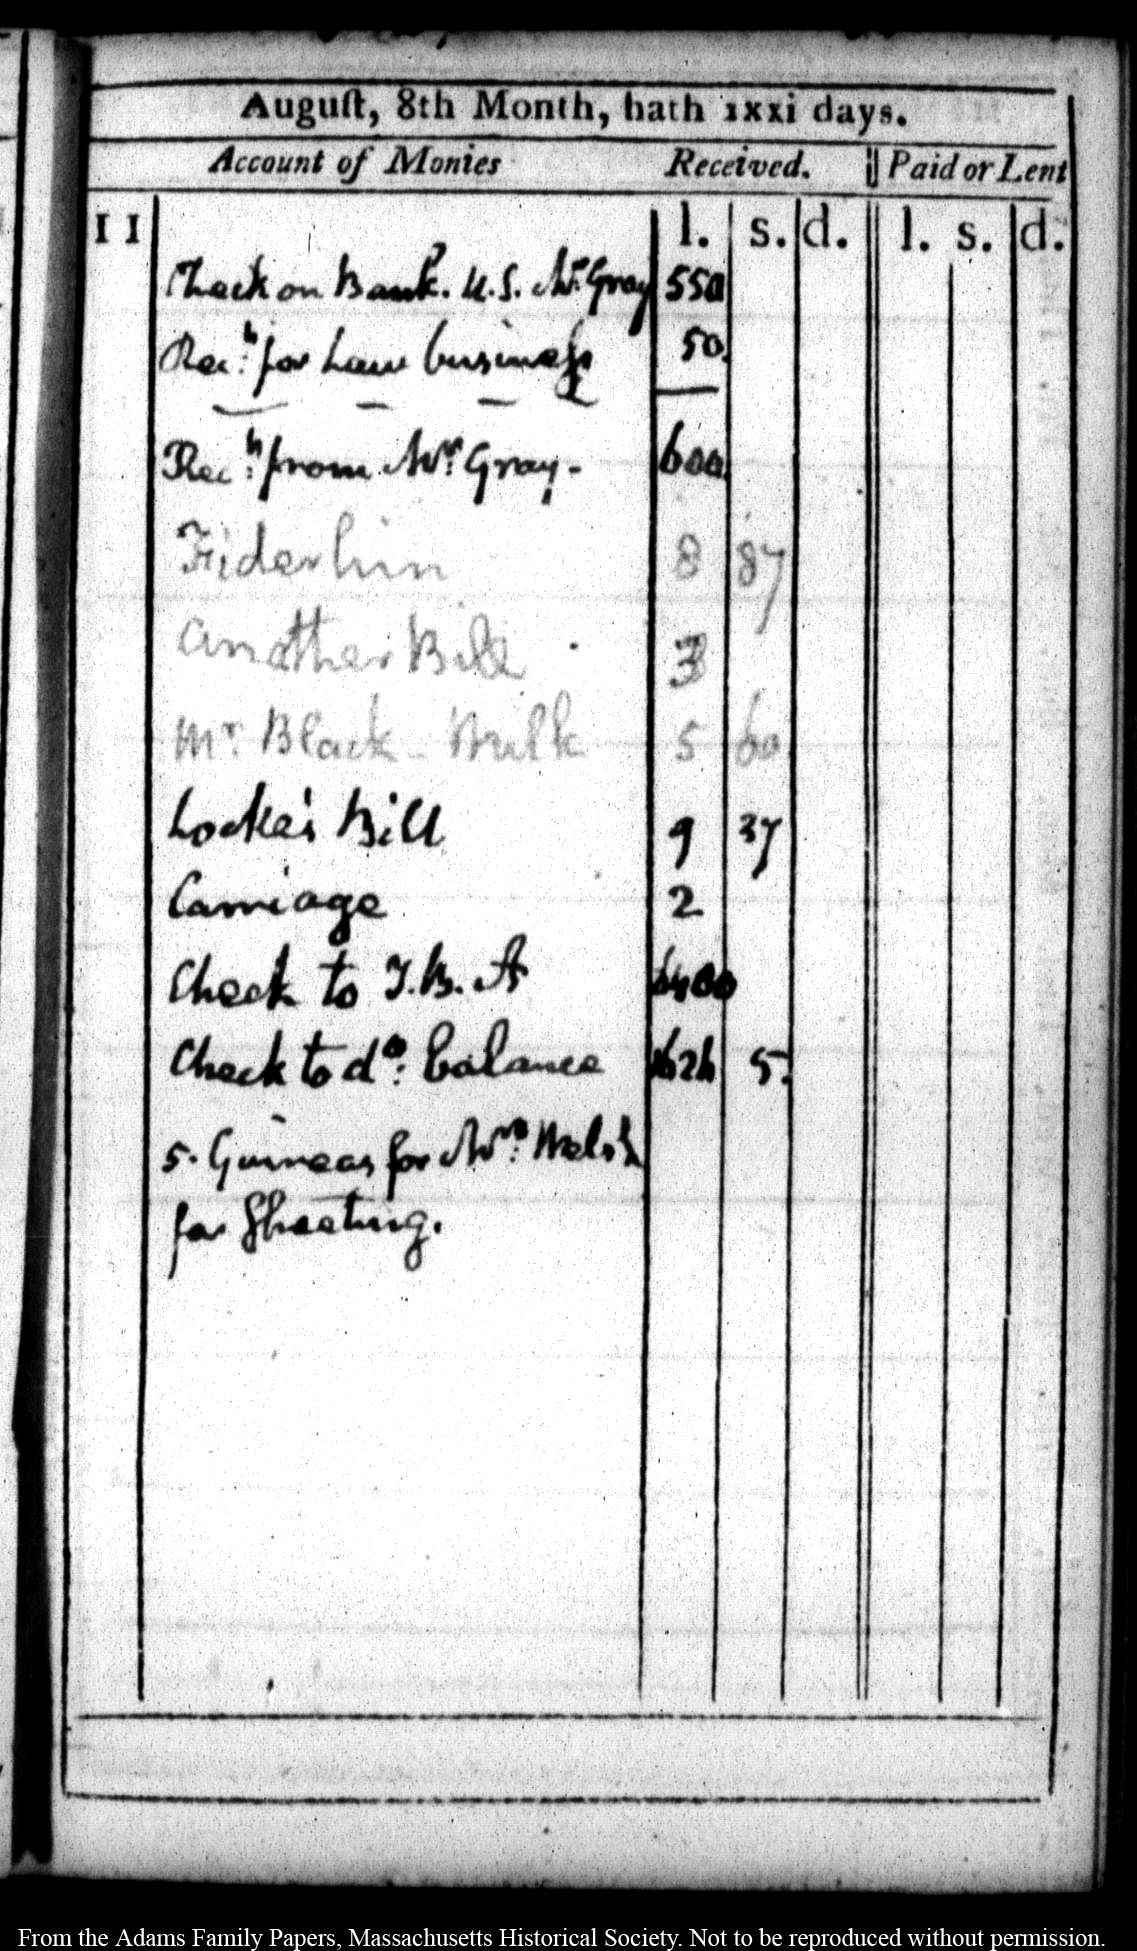 Auguſt, 8th Month, hath ıxxi days.
Account of Monies Received. || Paid or Lent
11 l. s. d. l. s. d.
Check on Bank. U.S. Mr. Gray 550
Recd. for Law business 50
Recd. from Mr. Gray - 600
8 87
another Bill 3
Mr. Black - Milk 5 60
Locke's Bill 9 37
Carriage 2
Check to T.B.A 400
Check to do. balance 5.
5. Guineas for Mrs. Welsh
for Sheeting.
From the Adams Family Papers, Massachusetts Historical Society. Not to be reproduced without permission.